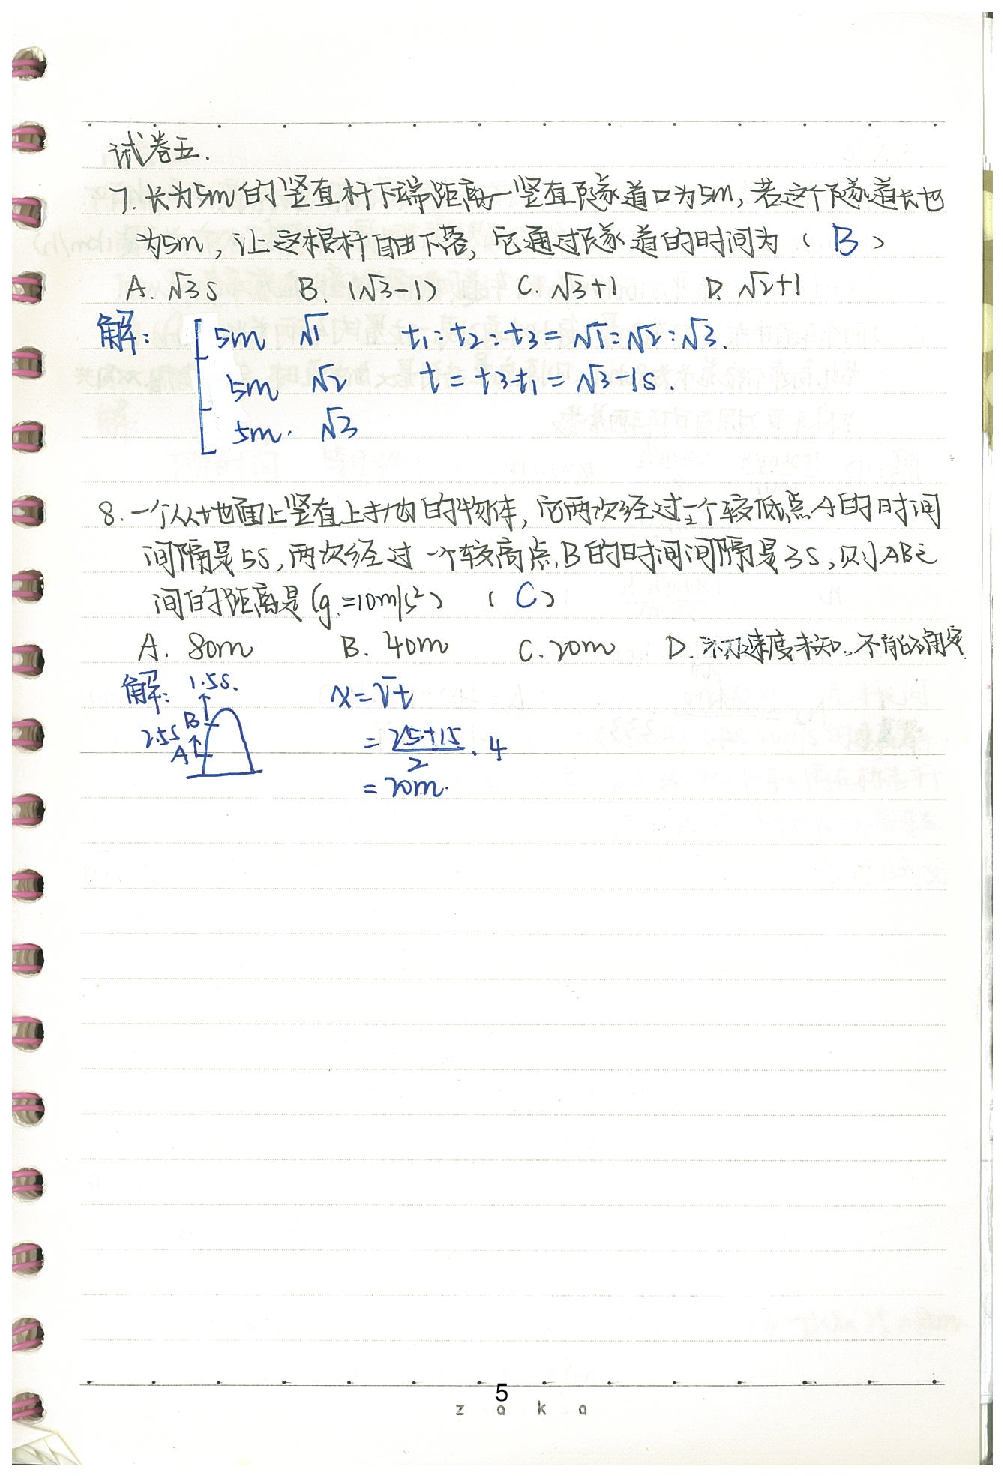 试卷五.
7. 长为5m的竖直杆下端距离一竖直隧道口为5m, 若这个隧道长也
为5m, 让这根杆自由下落, 它通过隧道的时间为 ( B )
A. √3 s B. (√3-1) C. √3+1 D. √2+1
解: 5m √1 t₁:t₂:t₃=√1:√2:√3.
5m √2 t=t₃-t₁=√3-1s.
5m. √3
8. 一个从地面上竖直上抛的物体, 它两次经过一个较低点A的时间
间隔是5s, 两次经过一个较高点B的时间间隔是3s, 则AB之
间的距离是(g=10m/s²) ( C )
A. 80m B. 40m C. 20m D. 初速度未知, 不能确定
解: 1.5s. x=v̄t
B
2.5s A = 25+15 / 2 · 4
= 20m.
5
zaka